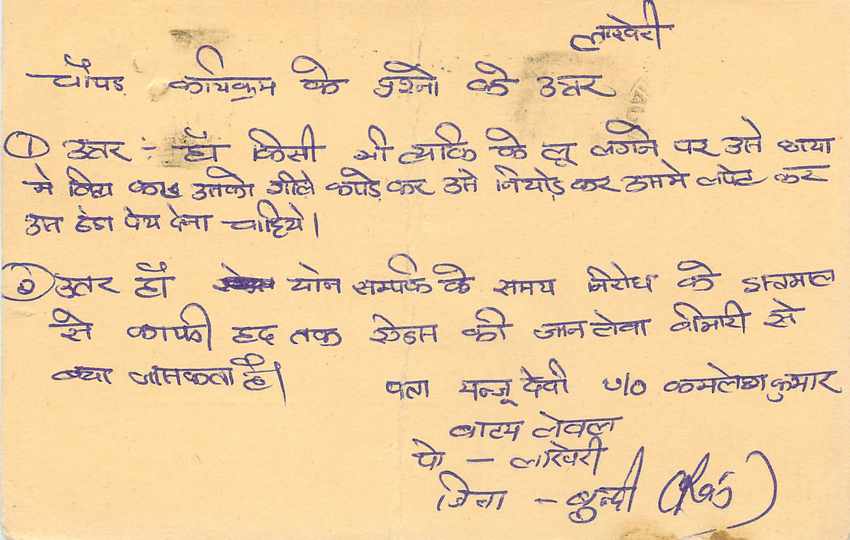 लाखेरी
चौपड़ कार्यक्रम के प्रश्नो के उत्तर
① उत्तर :- हाँ किसी भी व्यक्ति के लू लगने पर उसे छाया
मे लिटा कर उसको गीले कपड़े कर उसे निचोड़ कर उसमे लपेट कर
उस ठंडा पेय देना चाहिये।
② उत्तर हाँ योन सम्पर्क के समय निरोध के इस्तमाल
से काफी हद तक एडस की जान लेवा बीमारी से
बचा जासकता है।
पता मन्जू देवी w/o कमलेश कुमार
बाटम लेवल
पो - लाखेरी
जिला - बुन्दी (राज)